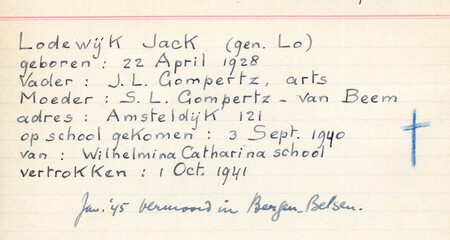 Lodewijk Jack (gen. Lo)
geboren : 22 April 1928
Vader : J.L. Gompertz, arts
Moeder : S.L. Gompertz - van Beem
adres : Amsteldijk 121
op school gekomen : 3 Sept. 1940
van : Wilhelmina Catharina school
vertrokken : 1 Oct. 1941
Jan. '45 vermoord in Bergen-Belsen.